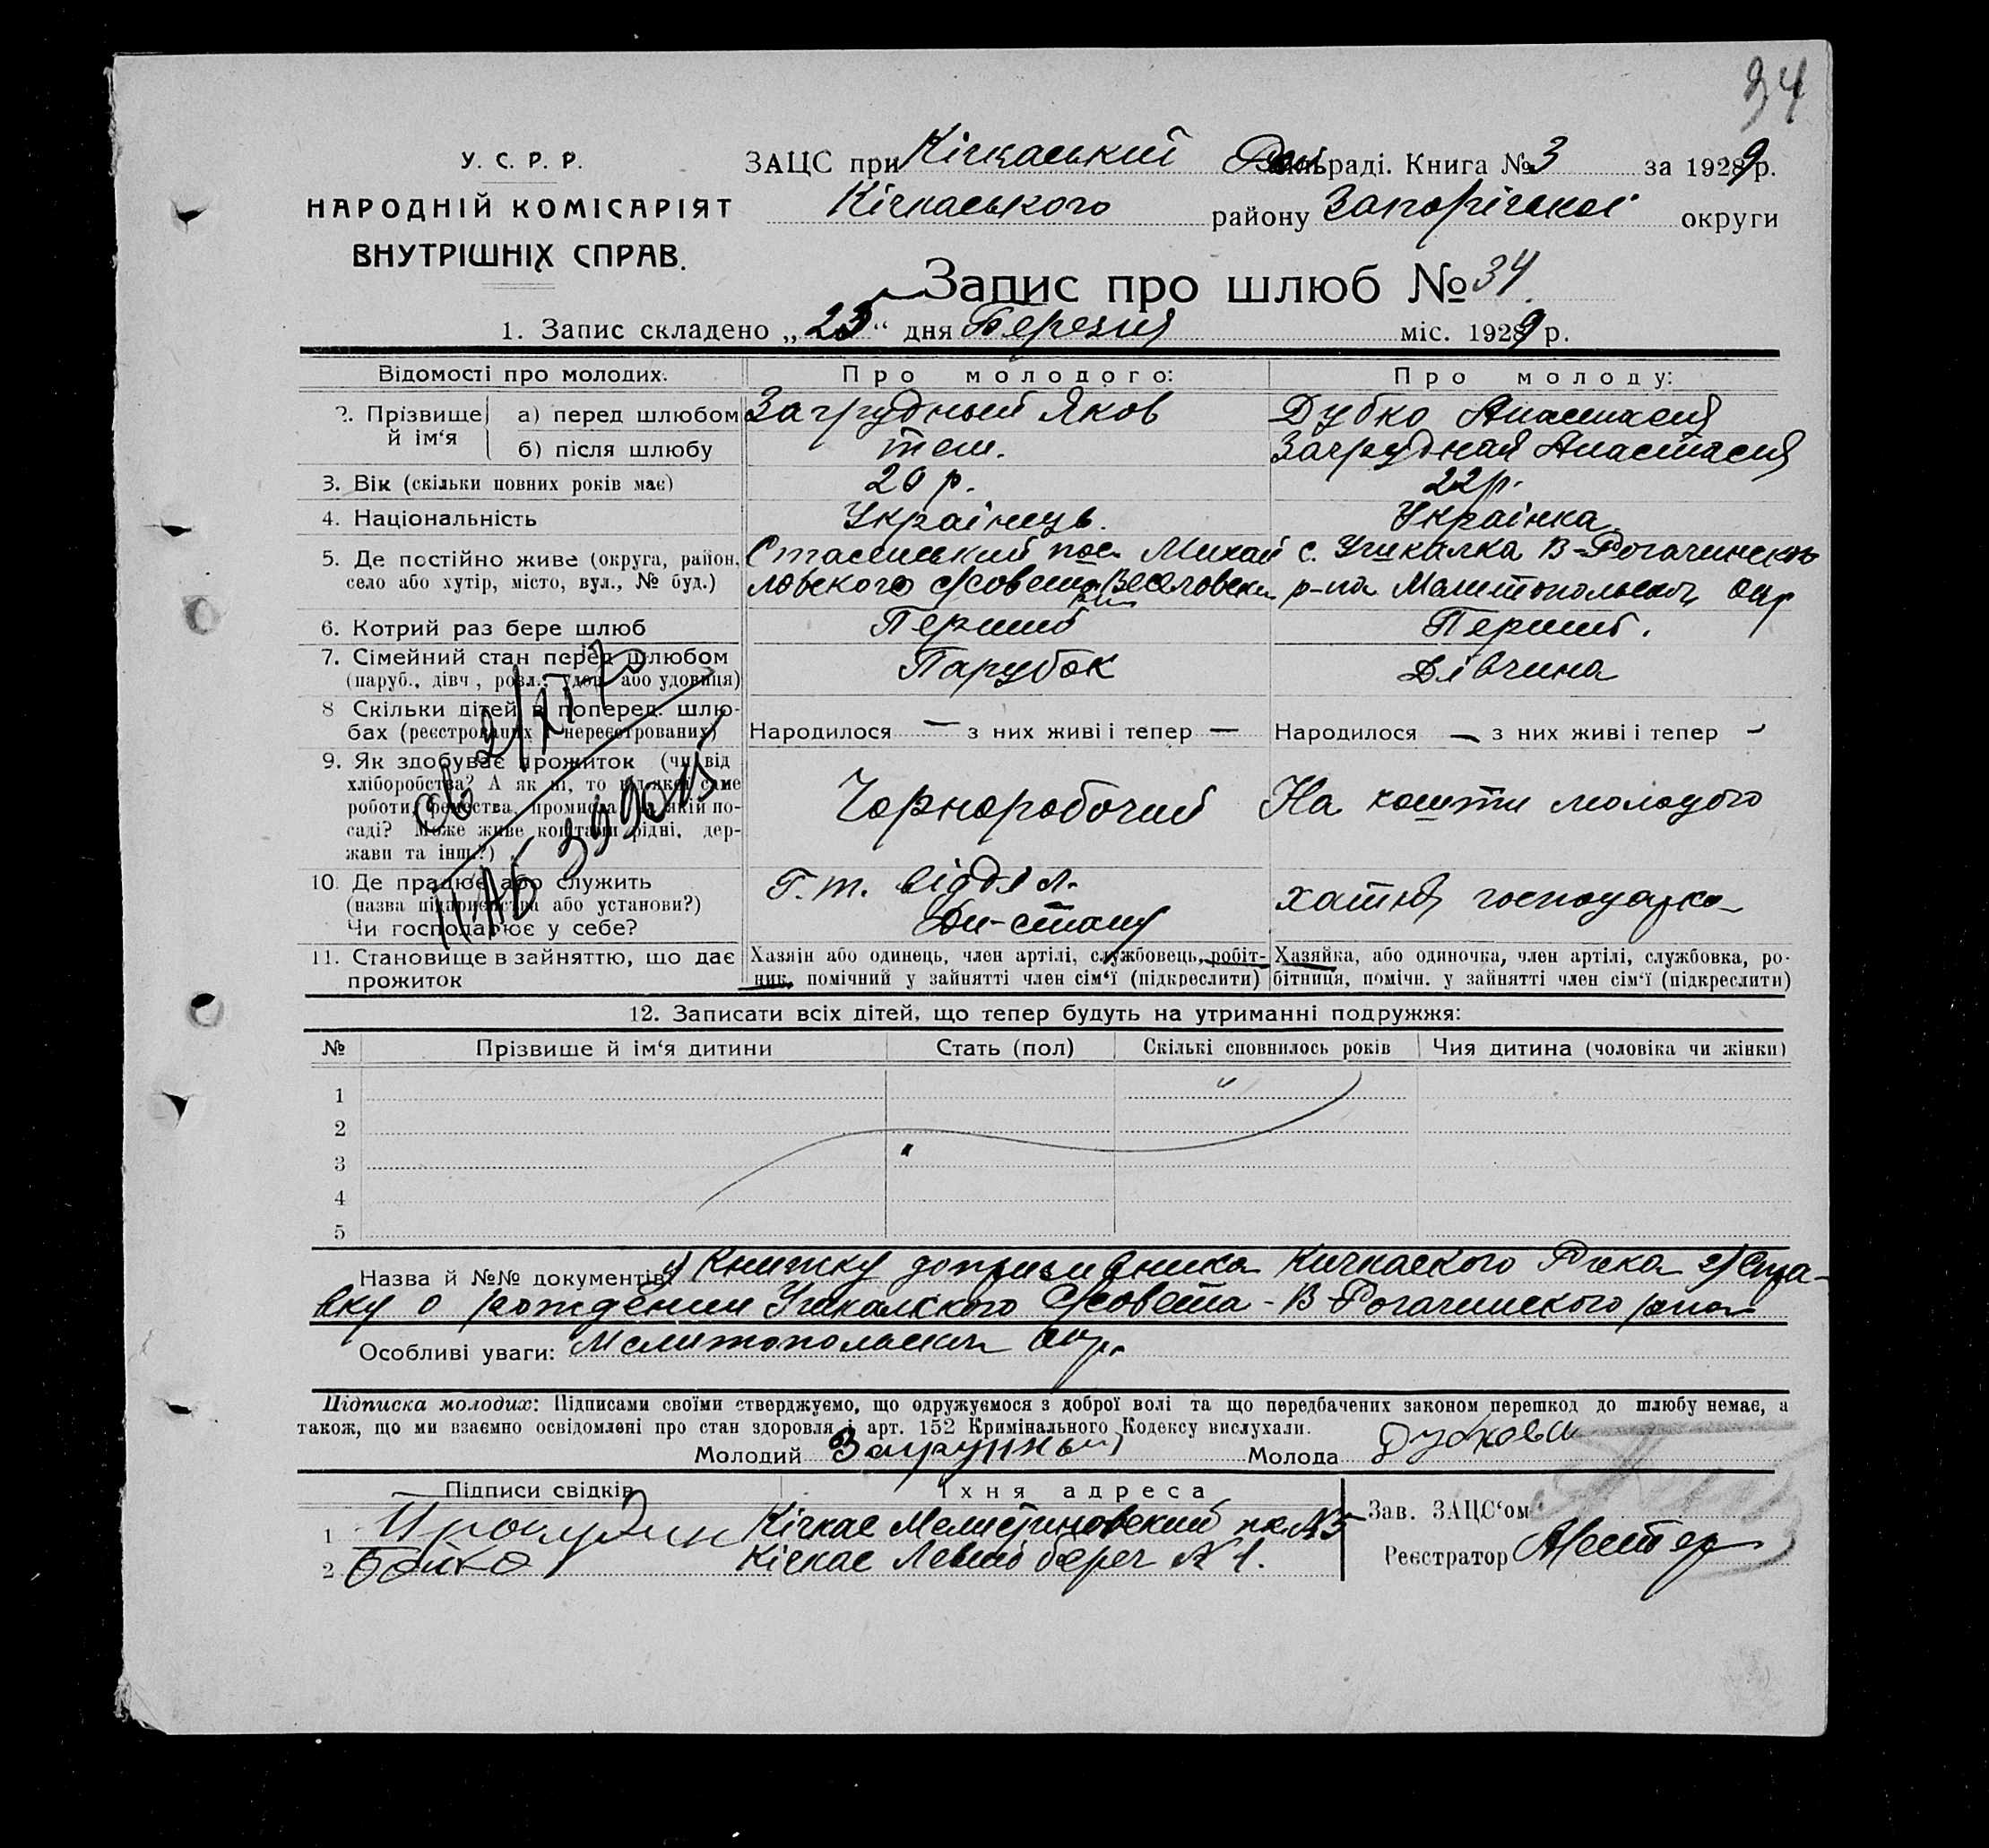 34
У. С. Р. Р.
НАРОДНІЙ КОМІСАРІЯТ
ВНУТРІШНІХ СПРАВ.
ЗАЦС при Кічкаський раді. Книга № 3 за 1929 р.
Кічкаського району Запорізької округи
Запис про шлюб № 34.
1. Запис складено „25“ дня Березня міс. 1929 р.
Відомості про молодих. Про молодого: Про молоду:
2. Прізвище й ім‘я а) перед шлюбом Загрудный Яков Дубко Анастасия
б) після шлюбу теж. Загрудная Анастасия
3. Вік (скільки повних років має) 20 р. 22 р.
4. Національність Українець. Українка.
5. Де постійно живе (округа, район, пос. Михай с. Учкалка В-Рогачинского
село або хутір, місто, вул., № буд.) ловского с/совета р-на Мелитопольской Окр
6. Котрий раз бере шлюб Перший Перший.
7. Сімейний стан перед шлюбом Парубок Дівчина
(паруб., дівч., розл., удов. або удовиця)
8 Скільки дітей в поперед. шлю-
бах (реєстрованих і нереєстрованих) Народилося — з них живі і тепер — Народилося — з них живі і тепер -
9. Як здобуває прожиток (чи від
хліборобства? А як ні, то від якої саме
роботи, ремества, промисла, на якій по- Чорноробочий На кошти молодого
саді? Може живе коштами рідні, дер-
жави та інш.?)
10. Де працює або служить Г. т. відділ.
(назва підприємства або установи?) хатня господарка
Чи господарює у себе?
11. Становище в зайняттю, що дає Хазяін або одинець, член артілі, службовець, робіт- Хазяйка, або одиночка, член артілі, службовка, ро-
прожиток ник, помічний у зайнятті член сім‘ї (підкреслити) бітниця, помічн. у зайнятті член сім‘ї (підкреслити)
12. Записати всіх дітей, що тепер будуть на утриманні подружжя:
№ Прізвище й ім‘я дитини Стать (пол) Скількі сповнилось років Чия дитина (чоловіка чи жінки)
1
2
3
4
5
Назва й №№ документів: 1) Книжку допризивника Кичкаского Рика 2) Спра-
вку о рождении Учкалского С/совета - В-Рогачинского района
Особливі уваги: Мелитопольской Окр.
Підписка молодих: Підписами своїми стверджуємо, що одружуємося з доброї волі та що передбачених законом перешкод до шлюбу немає, а
також, що ми взаємно освідомлені про стан здоровля і арт. 152 Кримінального Кодексу вислухали.
Молодий Загрудный Молода Дубкова
Підписи свідків Їхня адреса
1 Кічкас
2 Бойко Кічкас Левый берег № 1.
Зав. ЗАЦС‘ом
Реєстратор